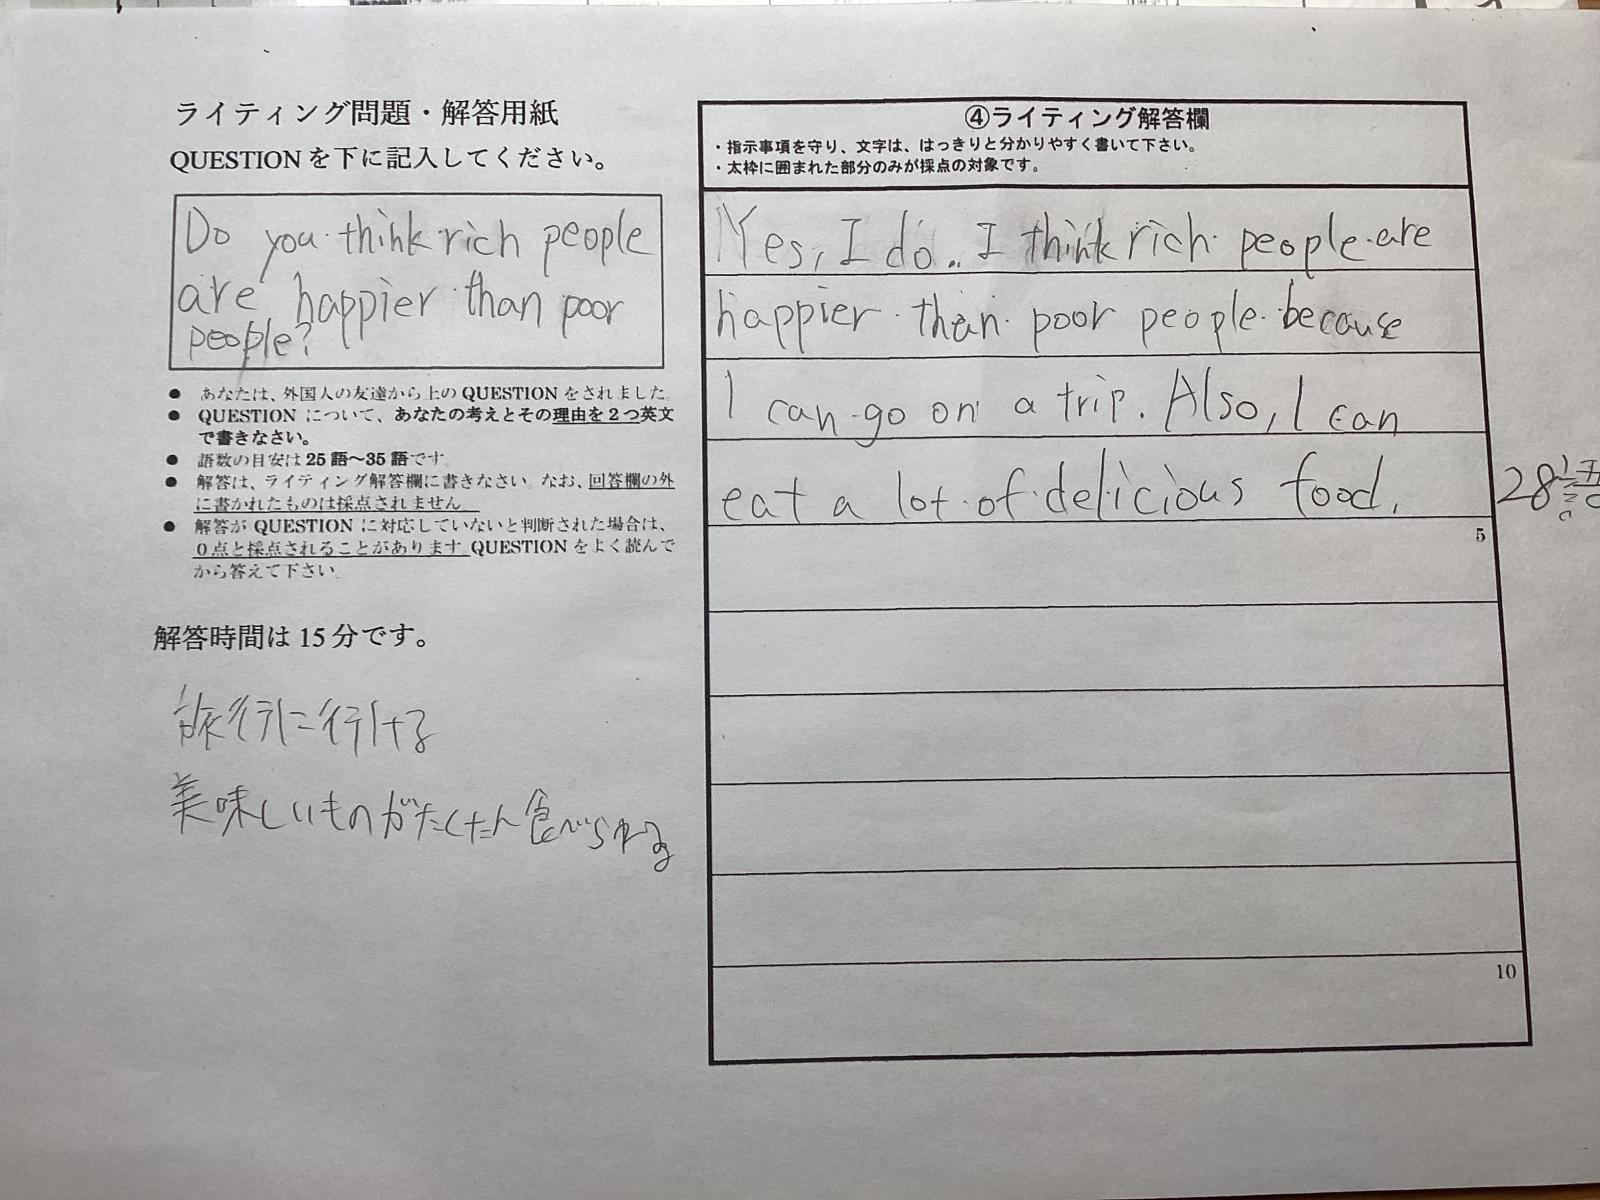 ライティング問題・解答用紙
QUESTIONを下に記入してください。
Do you think rich people
are happier than poor
people?
● あなたは、外国人の友達から上のQUESTIONをされました。
● QUESTION について、あなたの考えとその理由を2つ英文
で書きなさい。
● 語数の目安は25語～35語です。
● 解答は、ライティング解答欄に書きなさい。なお、回答欄の外
に書かれたものは採点されません。
● 解答がQUESTIONに対応していないと判断された場合は、
0点と採点されることがあります。QUESTIONをよく読んで
から答えて下さい。
解答時間は15分です。
旅行に行ける
美味しいものがたくさん食べられる
④ライティング解答欄
・指示事項を守り、文字は、はっきりと分かりやすく書いて下さい。
・太枠に囲まれた部分のみが採点の対象です。
Yes, I do. I think rich people are
happier than poor people because
I can go on a trip. Also, I can
eat a lot of delicious food.
28
5
10